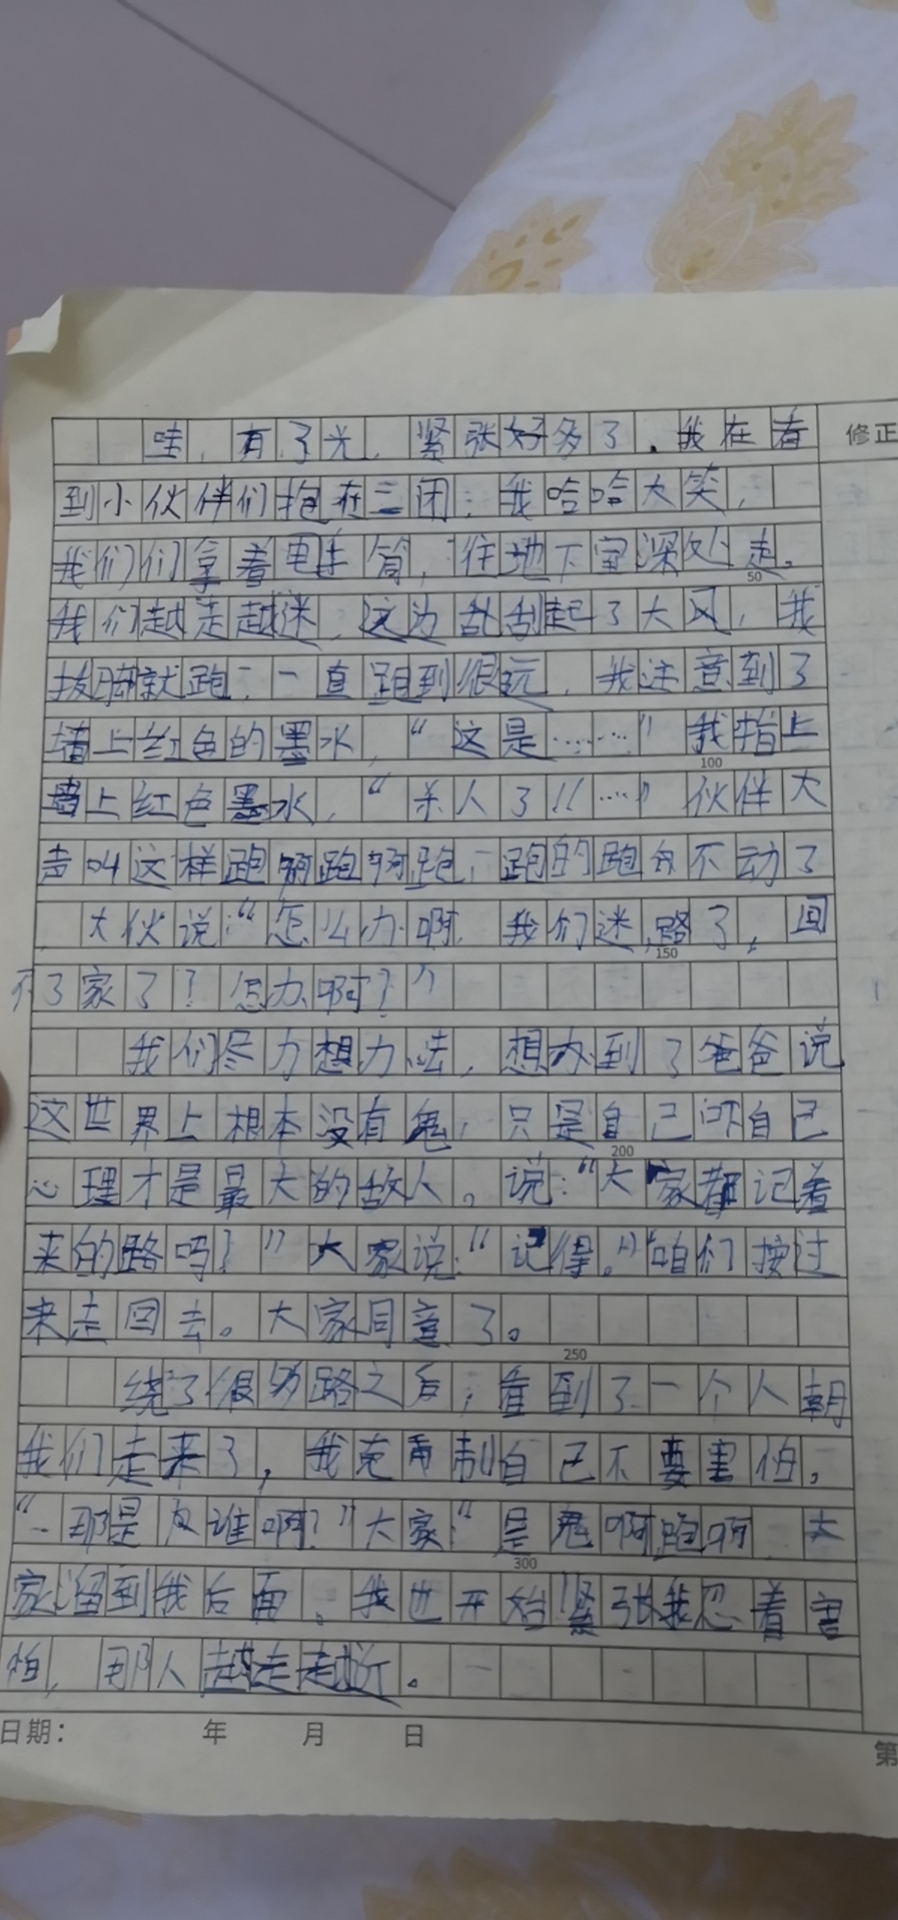 哇，有了光，紧张好多了，我在看 修正
到小伙伴们抱在三闭；我哈哈大笑，
我们们拿着电手筒，往地下室深处走。
50
我们越走越迷，这为乱刮起了大风，我
拔脚就跑；一直跑到很远，我注意到了
墙上红色的墨水，“这是……”我指上
100
墙上红色墨水，“杀人了！！……”伙伴大
声叫这样跑啊跑啊跑，跑的跑都不动了
大伙说：“怎么办啊，我们迷路了，回
150
不了家了？怎办啊？”
我们尽力想力法，想办到了爸爸说
这世界上根本没有鬼，只是自己吓自己
200
心理才是最大的敌人。说：“大家都记着
来的路吗？”大家说：“记得。”咱们按过
来走回去。大家同意了。
250
绕了很多路之后，看到了一个人朝
我们走来了，我克制自己不要害怕。
“那是 谁啊？”大家：“是鬼啊跑啊 大
300
家溜到我后面。我也开始紧张我忍着害
怕，那人越走越近。
日期： 年 月 日
第